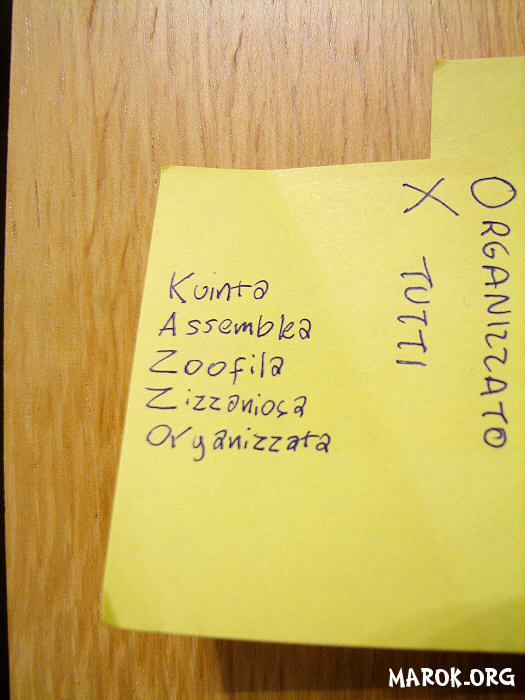 Kuinta
Assemblea
Zoofila
Zizzaniosa
Organizzata
ORGANIZZATO
X TUTTI
MAROK.ORG